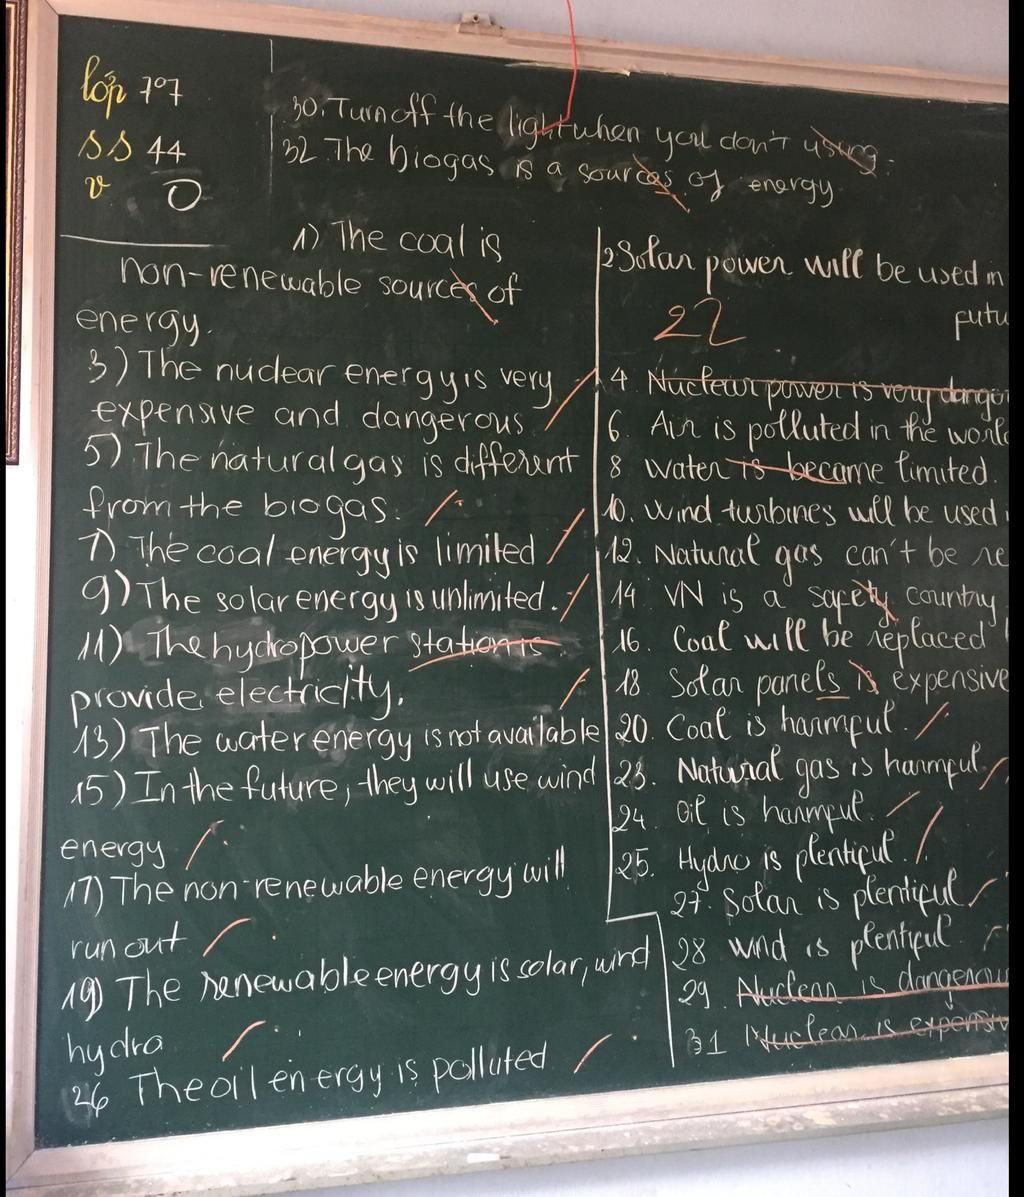 lớp 7⁰7
SS 44
v 0
30. Turn off the light when you don't using.
32 The biogas is a sources of energy
1) The coal is
non-renewable sources of
energy.
3) The nuclear energy is very
expensive and dangerous
5) The natural gas is different
from the biogas.
7) The coal energy is limited
9) The solar energy is unlimited.
11) The hydropower station is
provide electricity.
13) The water energy is not available
15) In the future, they will use wind
energy
17) The non-renewable energy will
run out
19) The renewable energy is solar, wind
hydro
26 The oil energy is polluted
2 Solar power will be used in
futu
22
4 Nuclear power is very dange
6. Air is polluted in the worl
8 Water is became limited.
10. Wind turbines will be used
12. Natural gas can't be re
14 VN is a safety country
16. Coal will be replaced
18 Solar panels is expensive
20. Coal is harmful.
23. Natural gas is harmful.
24. Oil is harmful.
25. Hydro is plentiful.
27. Solar is plentiful
28 wind is plentiful
29. Nuclear is dangerou
31 Nuclear is expensiv